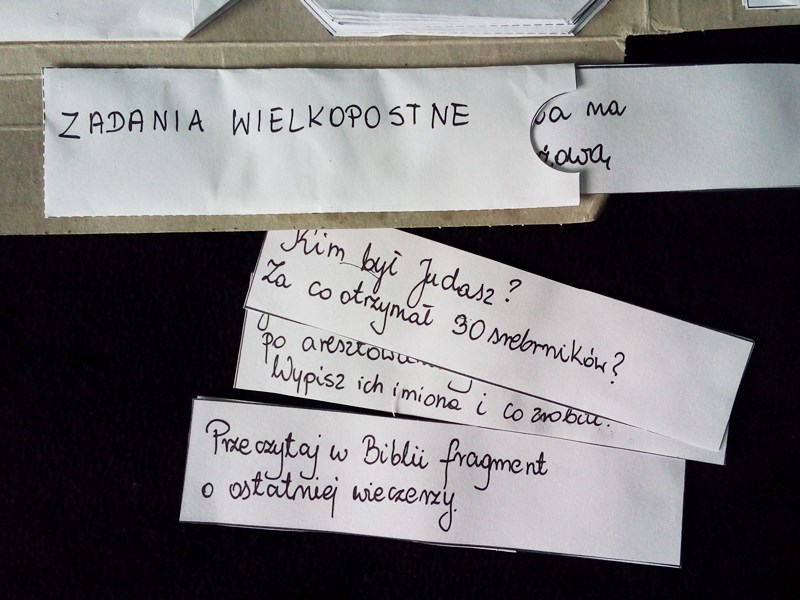 ZADANIA WIELKOPOSTNE
na
Kim był Judasz?
Za co otrzymał 30 srebrników?
po
Wypisz ich imiona i co zrobili.
Przeczytaj w Biblii fragment
o ostatniej wieczerzy.